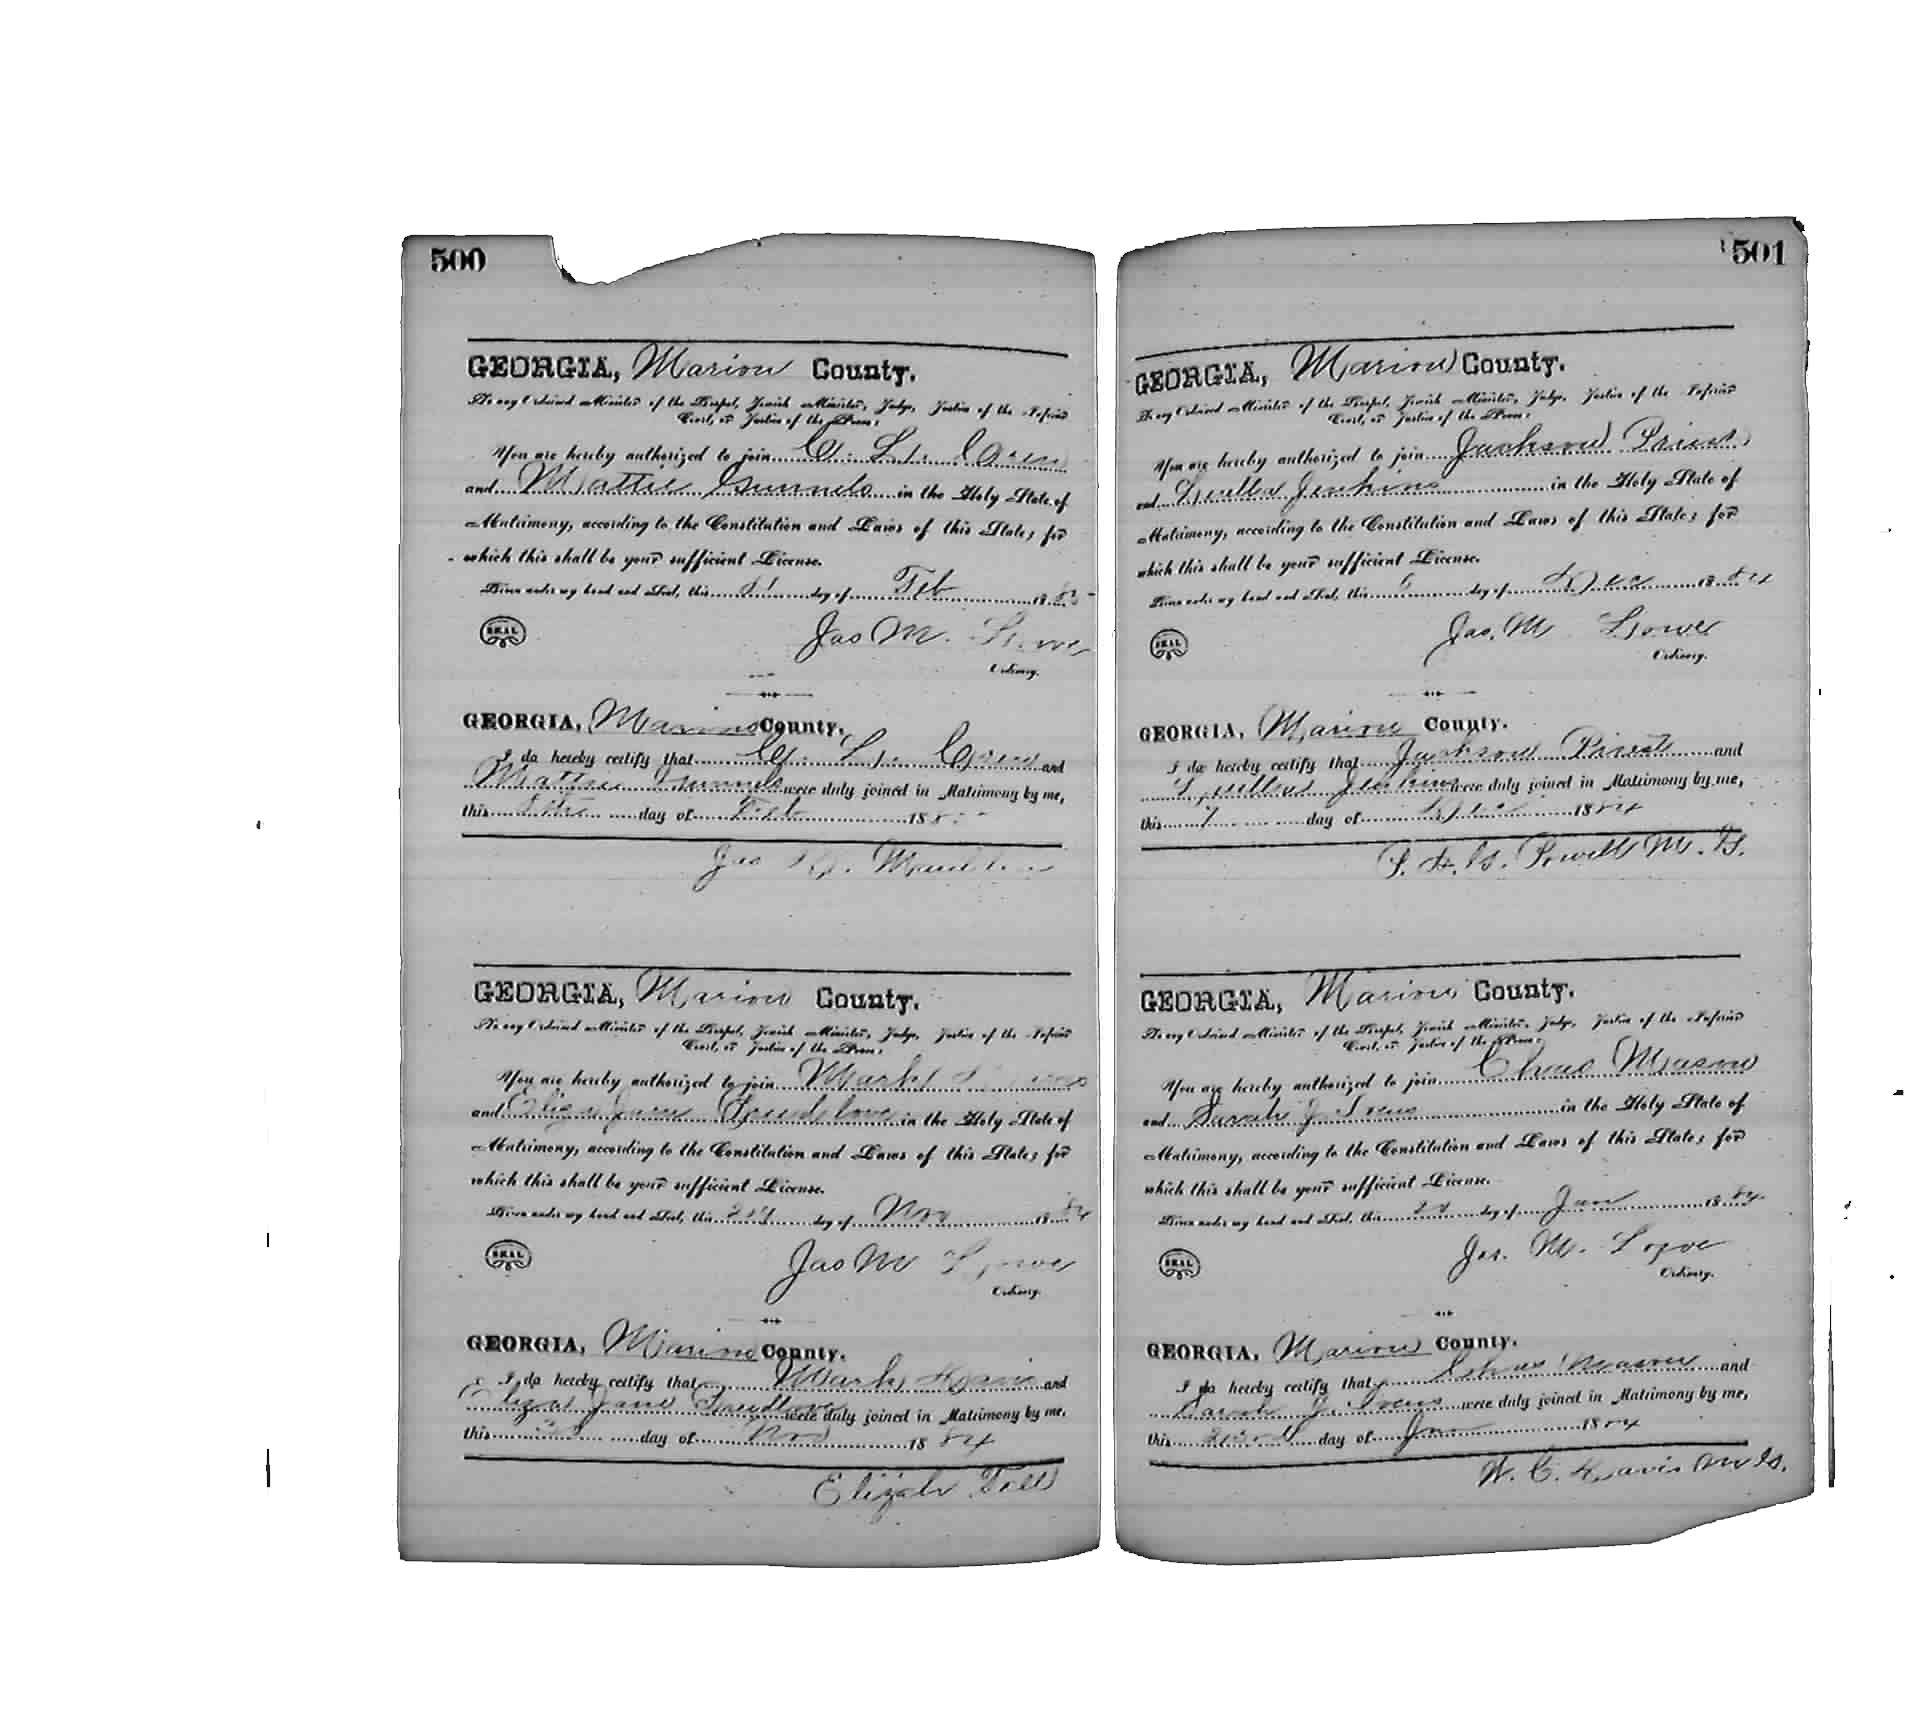 500
GEORGIA, Marion County.
To any Ordained Minister of the Gospel, Jewish Minister, Judge, Justice of the Inferior
Court, or Justice of the Peace:
You are hereby authorized to join
and Mattie Gunnels in the Holy State of
Matrimony, according to the Constitution and Laws of this State; for
which this shall be your sufficient License.
Given under my hand and Seal, this day of Feb 1885
SEAL
Jas M. Lowe
Ordinary.
GEORGIA, Marion County.
I do hereby certify that and
Mattie Gunnels were duly joined in Matrimony by me,
this 8th day of Feb 188
Jas
GEORGIA, Marion County.
To any Ordained Minister of the Gospel, Jewish Minister, Judge, Justice of the Inferior
Court, or Justice of the Peace:
You are hereby authorized to join Mark
and Eliza Jane in the Holy State of
Matrimony, according to the Constitution and Laws of this State; for
which this shall be your sufficient License.
Given under my hand and Seal, this day of Nov 1884
SEAL
Jas M Lowe
Ordinary.
GEORGIA, Marion County.
I do hereby certify that Mark Davis and
Eliza Jane were duly joined in Matrimony by me,
this day of Nov 1884
Elizah
501
GEORGIA, Marion County.
To any Ordained Minister of the Gospel, Jewish Minister, Judge, Justice of the Inferior
Court, or Justice of the Peace:
You are hereby authorized to join Jackson Priest
and Luella Jenkins in the Holy State of
Matrimony, according to the Constitution and Laws of this State; for
which this shall be your sufficient License.
Given under my hand and Seal, this 6 day of Dec 1884
SEAL
Jas. M Lowe
Ordinary.
GEORGIA, Marion County.
I do hereby certify that Jackson Priest and
Luella Jenkins were duly joined in Matrimony by me,
this 7 day of Dec 1884
Powell M. G.
GEORGIA, Marion County.
To any Ordained Minister of the Gospel, Jewish Minister, Judge, Justice of the Inferior
Court, or Justice of the Peace:
You are hereby authorized to join Mason
and Sarah J. in the Holy State of
Matrimony, according to the Constitution and Laws of this State; for
which this shall be your sufficient License.
Given under my hand and Seal, this day of Jan 1884
SEAL
Jas. M. Lowe
Ordinary.
GEORGIA, Marion County.
I do hereby certify that Mason and
Sarah J. were duly joined in Matrimony by me,
this day of Jan 1884
W. C. Davis M G.